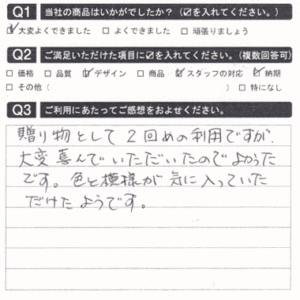 Q1 当社の商品はいかがでしたか?(☑を入れてください。)
☑大変よくできました □よくできました □頑張りましょう
Q2 ご満足いただけた項目に☑を入れてください。(複数回答可)
□価格 □品質 ☑デザイン □商品 ☑スタッフの対応 ☑納期
□その他( ) □特になし
Q3 ご利用にあたってご感想をおよせください。
贈り物として2回めの利用ですが、
大変喜んでいただいたのでよかった
です。色と模様が気に入っていた
だけたようです。